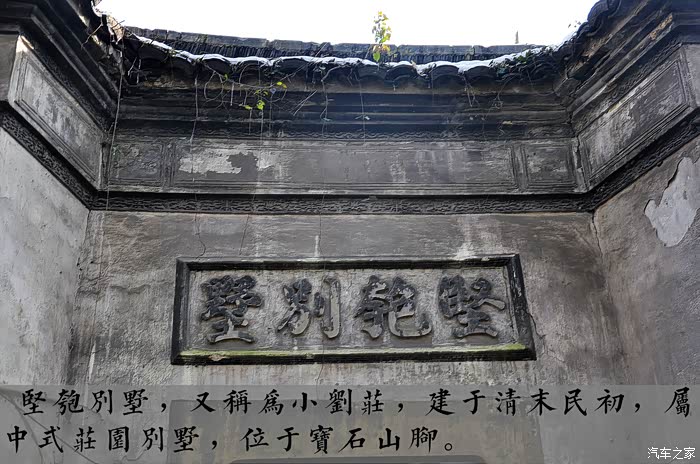 堅匏別墅
堅匏別墅，又稱爲小劉莊，建于清末民初，屬
中式莊園別墅，位于寶石山腳。
汽车之家